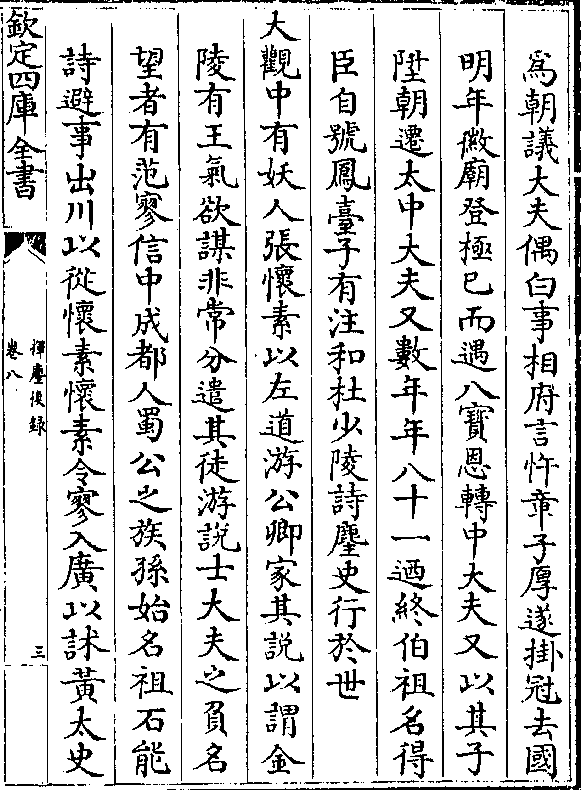 爲朝議大夫偶白事相府言忤章子厚遂掛冠去國
明年徽廟登極已而遇八寶恩轉中大夫又以其子
陞朝遷太中大夫又數年年八十一廼終伯祖名得
臣自號鳳臺子有注和杜少陵詩麈史行於世
大觀中有妖人張懷素以左道游公卿家其說以謂金
陵有王氣欲謀非常分遣其徒游說士大夫之負名
望者有范寥信中成都人蜀公之族孫始名祖石能
詩避事出川以從懷素懷素令寥入廣以訹黃太史
欽定四庫全書
揮麈後錄
卷八
三